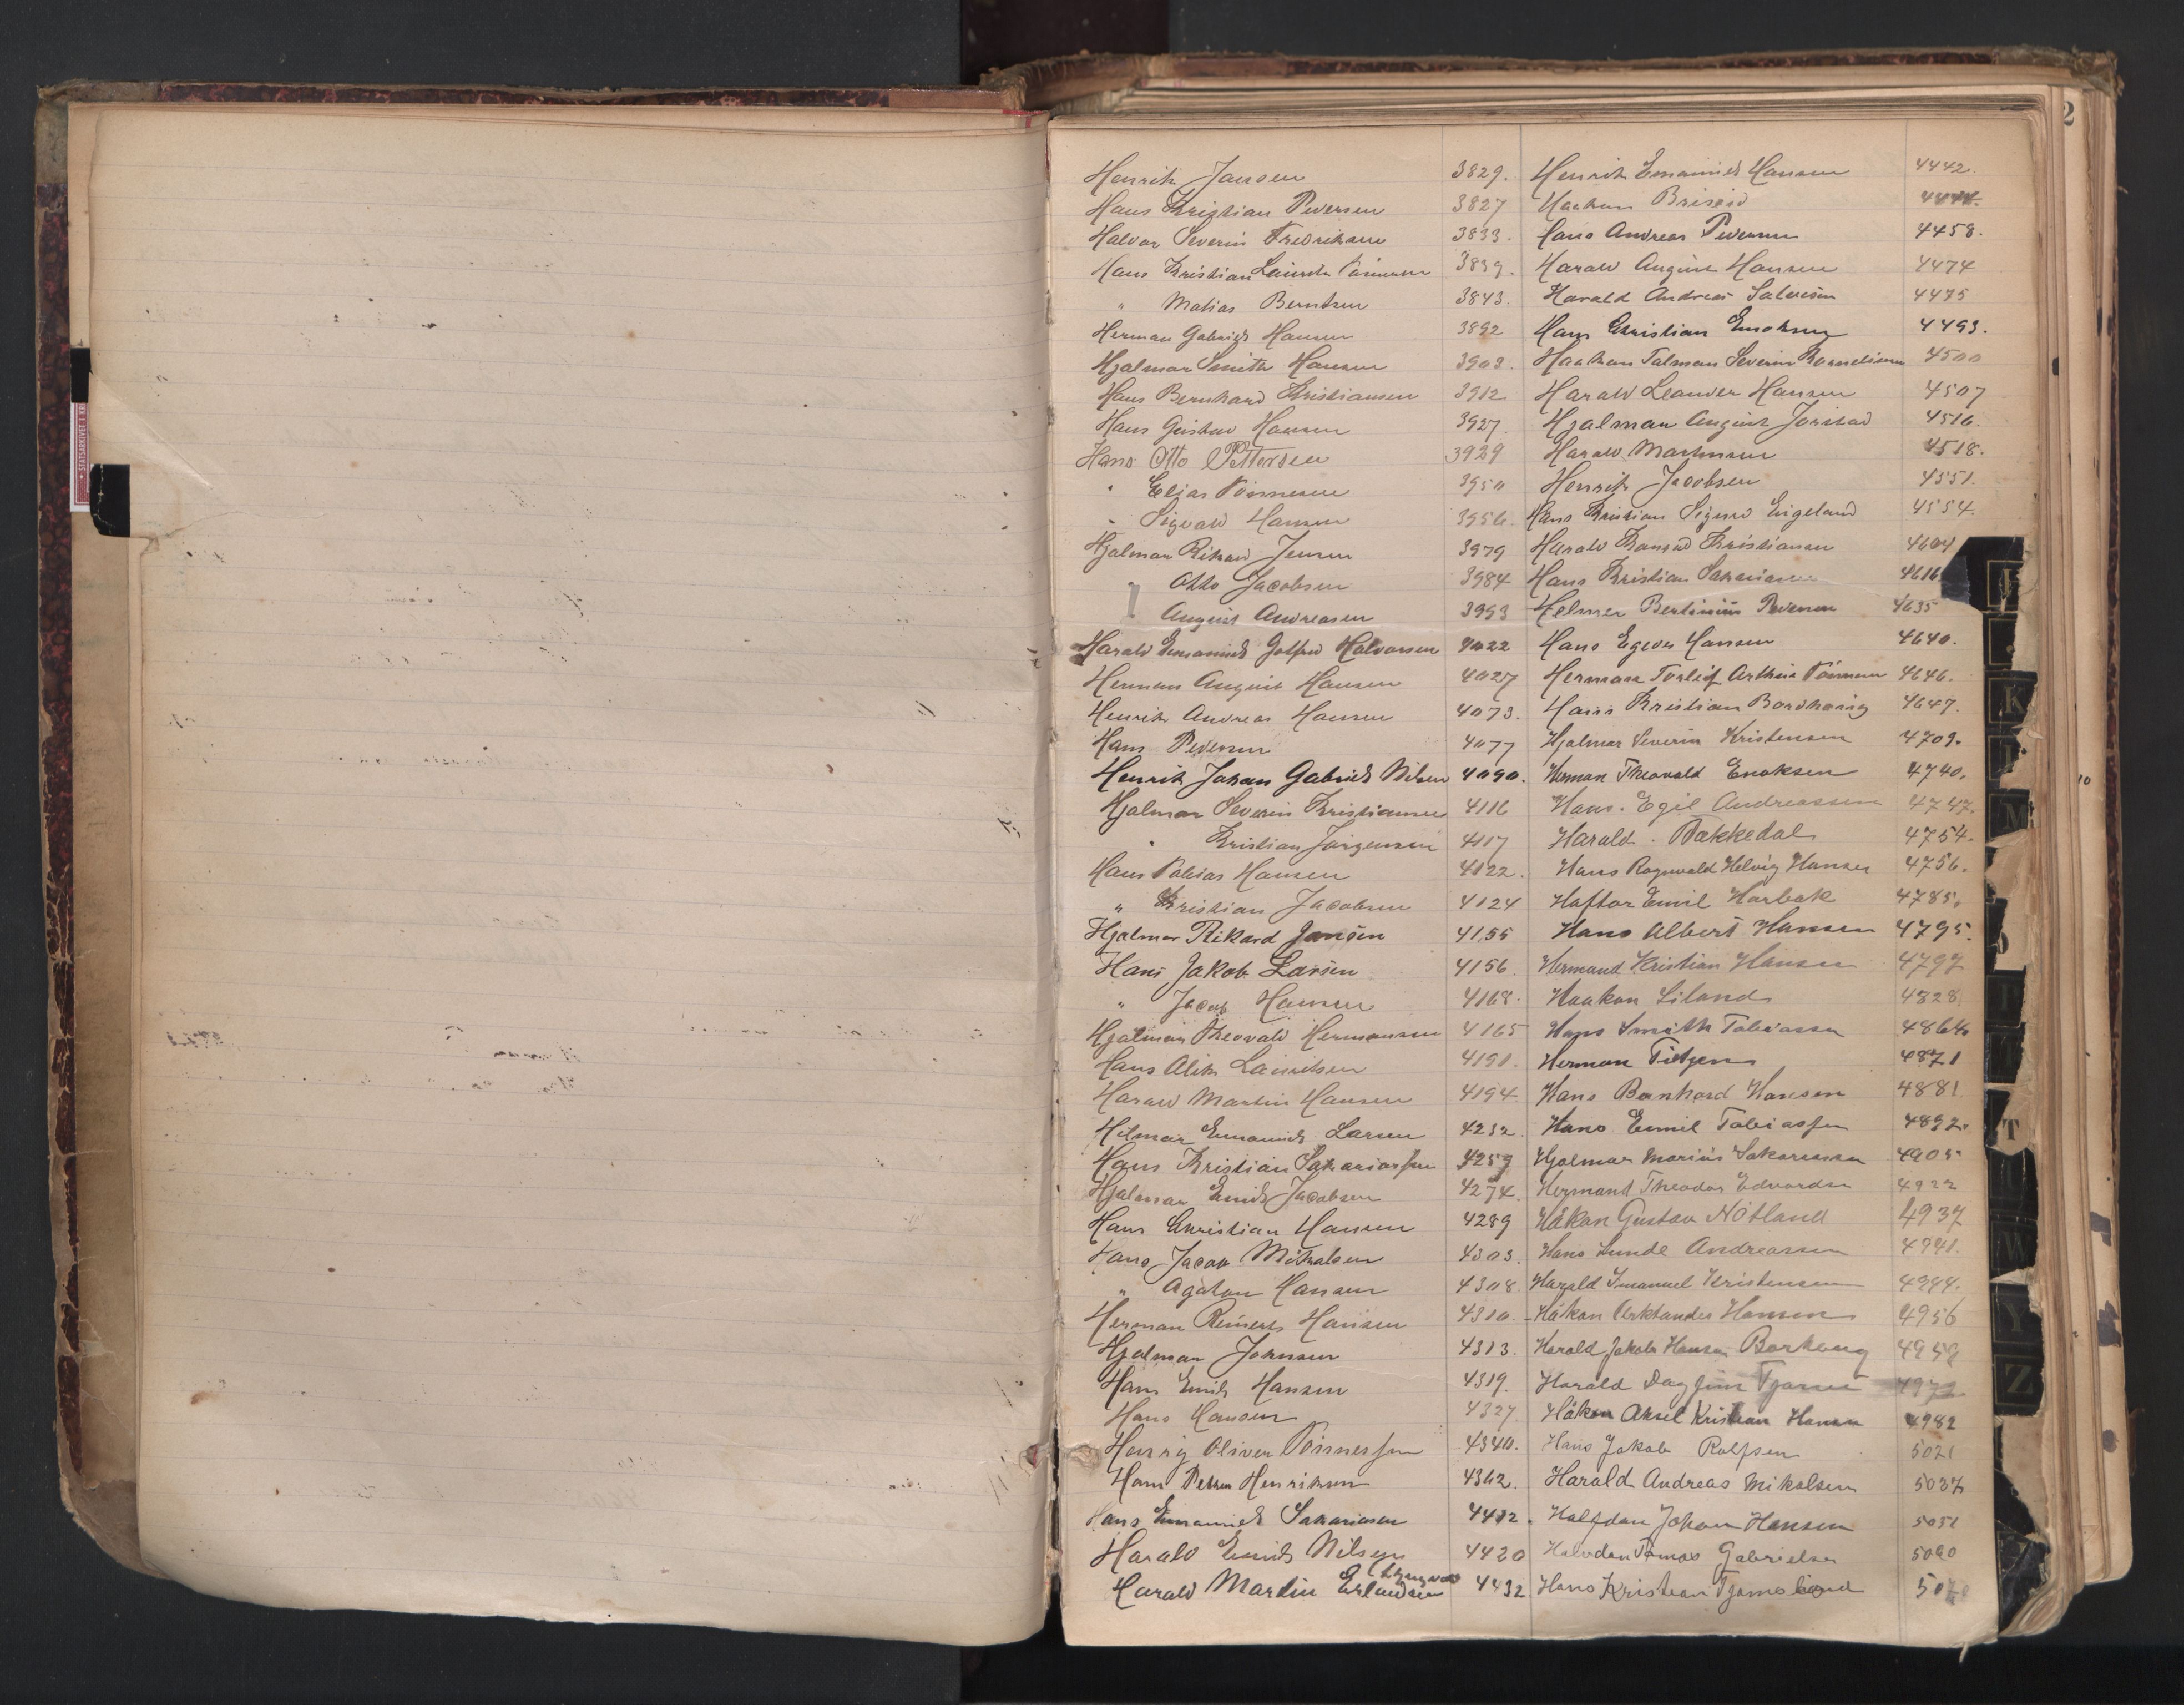 Henrik Jansen 3829.
Hans Kristian Pedersen 3827
Halvor Severin Fredriksen 3833.
Hans Kristian Lauritz Tønnesen 3839.
" Matias Berntsen 3843.
Herman Gabriel Hansen 3892
Hjalmar Smith Hansen 3903.
Hans Bernhard Kristiansen 3912
Hans Gustav Hansen 3927.
Hans Otto Pettersen 3929
" Elias Tønnesen 3950
" Sigvald Hansen 3956.
Hjalmar Rikard Jensen 3979
" Otto Jacobsen 3984
" August Andreasen 3993
Harald Emanuel Gotfred Halvorsen 4022
Herman August Hansen 4027
Henrik Andreas Hansen 4073.
Hans Pedersen 4077
Henrik Johan Gabriel Nilsen 4090.
Hjalmar Severin Kristiansen 4116
" Kristian Jørgensen 4117
Hans Tobias Hansen 4122.
" Kristian Jacobsen 4124
Hjalmar Rikard Jansen 4155
Hans Jakob Larsen 4156
" Jacob Hansen 4168.
Hjalmar Theovald Hermansen 4165
Hans Alik Lauritsen 4191.
Harald Martin Hansen 4194.
Hilmar Emanuel Larsen 4232.
Hans Kristian Sakariassen 4259
Hjalmar Emil Jacobsen 4274.
Hans Christian Hansen 4289
Hans Jacob Mikalsen 4303.
" Agaton Hansen 4308.
Herman Reinert Hansen 4310.
Hjalmar Johnsen 4313.
Hans Emil Hansen 4319.
Hans Hansen 4327.
Henry Oliver Tønnessen 4340.
Hans Petter Henriksen 4362.
Hans Emanuel Sakariasen 4412.
Harald Emil Nilsen 4420
Harald Martin Erlandsen 4432
Henrik Emanuel Hansen 4442.
Haakon
Hans Andreas Pedersen 4458.
Harald August Hansen 4474
Harald Andreas Salvesen 4475
Hans Christian Enoksen 4493.
Haakon Talman Severin Kornelius­sen 4500
Harald Leander Hansen 4507
Hjalmar August Jorstad 4516.
Harald Martinsen 4518.
Henrik Jacobsen 4551.
Hans Kristian Sigurd Eigeland 4554.
Harald Konrad Kristiansen 4604
Hans Kristian Sakariasen 4616
Helmer Bertinius Pedersen 4635
Hans Egede Hansen 4640.
Herman Torleif Arthur Tønnesen 4646.
Hans Kristian Bordhaug 4647.
Hjalmar Severin Kristensen 4709.
Herman Theovald Enoksen 4740.
Hans Egil Andreassen 4747.
Harald Bakkedal 4754.
Hans Ragnvald Helvig Hansen 4756.
Haftor Emil Harbak 4785.
Hans Albert Hansen 4795.
Hermand Kristian Hansen 4797
Haakon Liland 4828
Hans Smith Tobiassen 4864.
Herman Tietjen 4871
Hans Bernhard Hansen 4881
Hans Emil Tobiassen 4892.
Hjalmar Marius Sakariassen 4905
Hermand Theodor Edvardsen 4922
Håkon Gustav Nötland 4937
Hans Lunde Andreassen 4941.
Harald Imanuel Kristensen 4944.
Håkon Hansen 4956
Harald Jakob Hansen Borkoug
Harald Dagfinn 4972
Håkon Aksel Kristian Hansen 4982
Hans Jakob Rolfsen 5021
Harald Andreas Mikalsen 5037
Halfdan Johan Hansen 5051
Halvdan Tomas Gabrielsen 5060
Hans Kristian
K
M
T
W
Y
Z
2
10